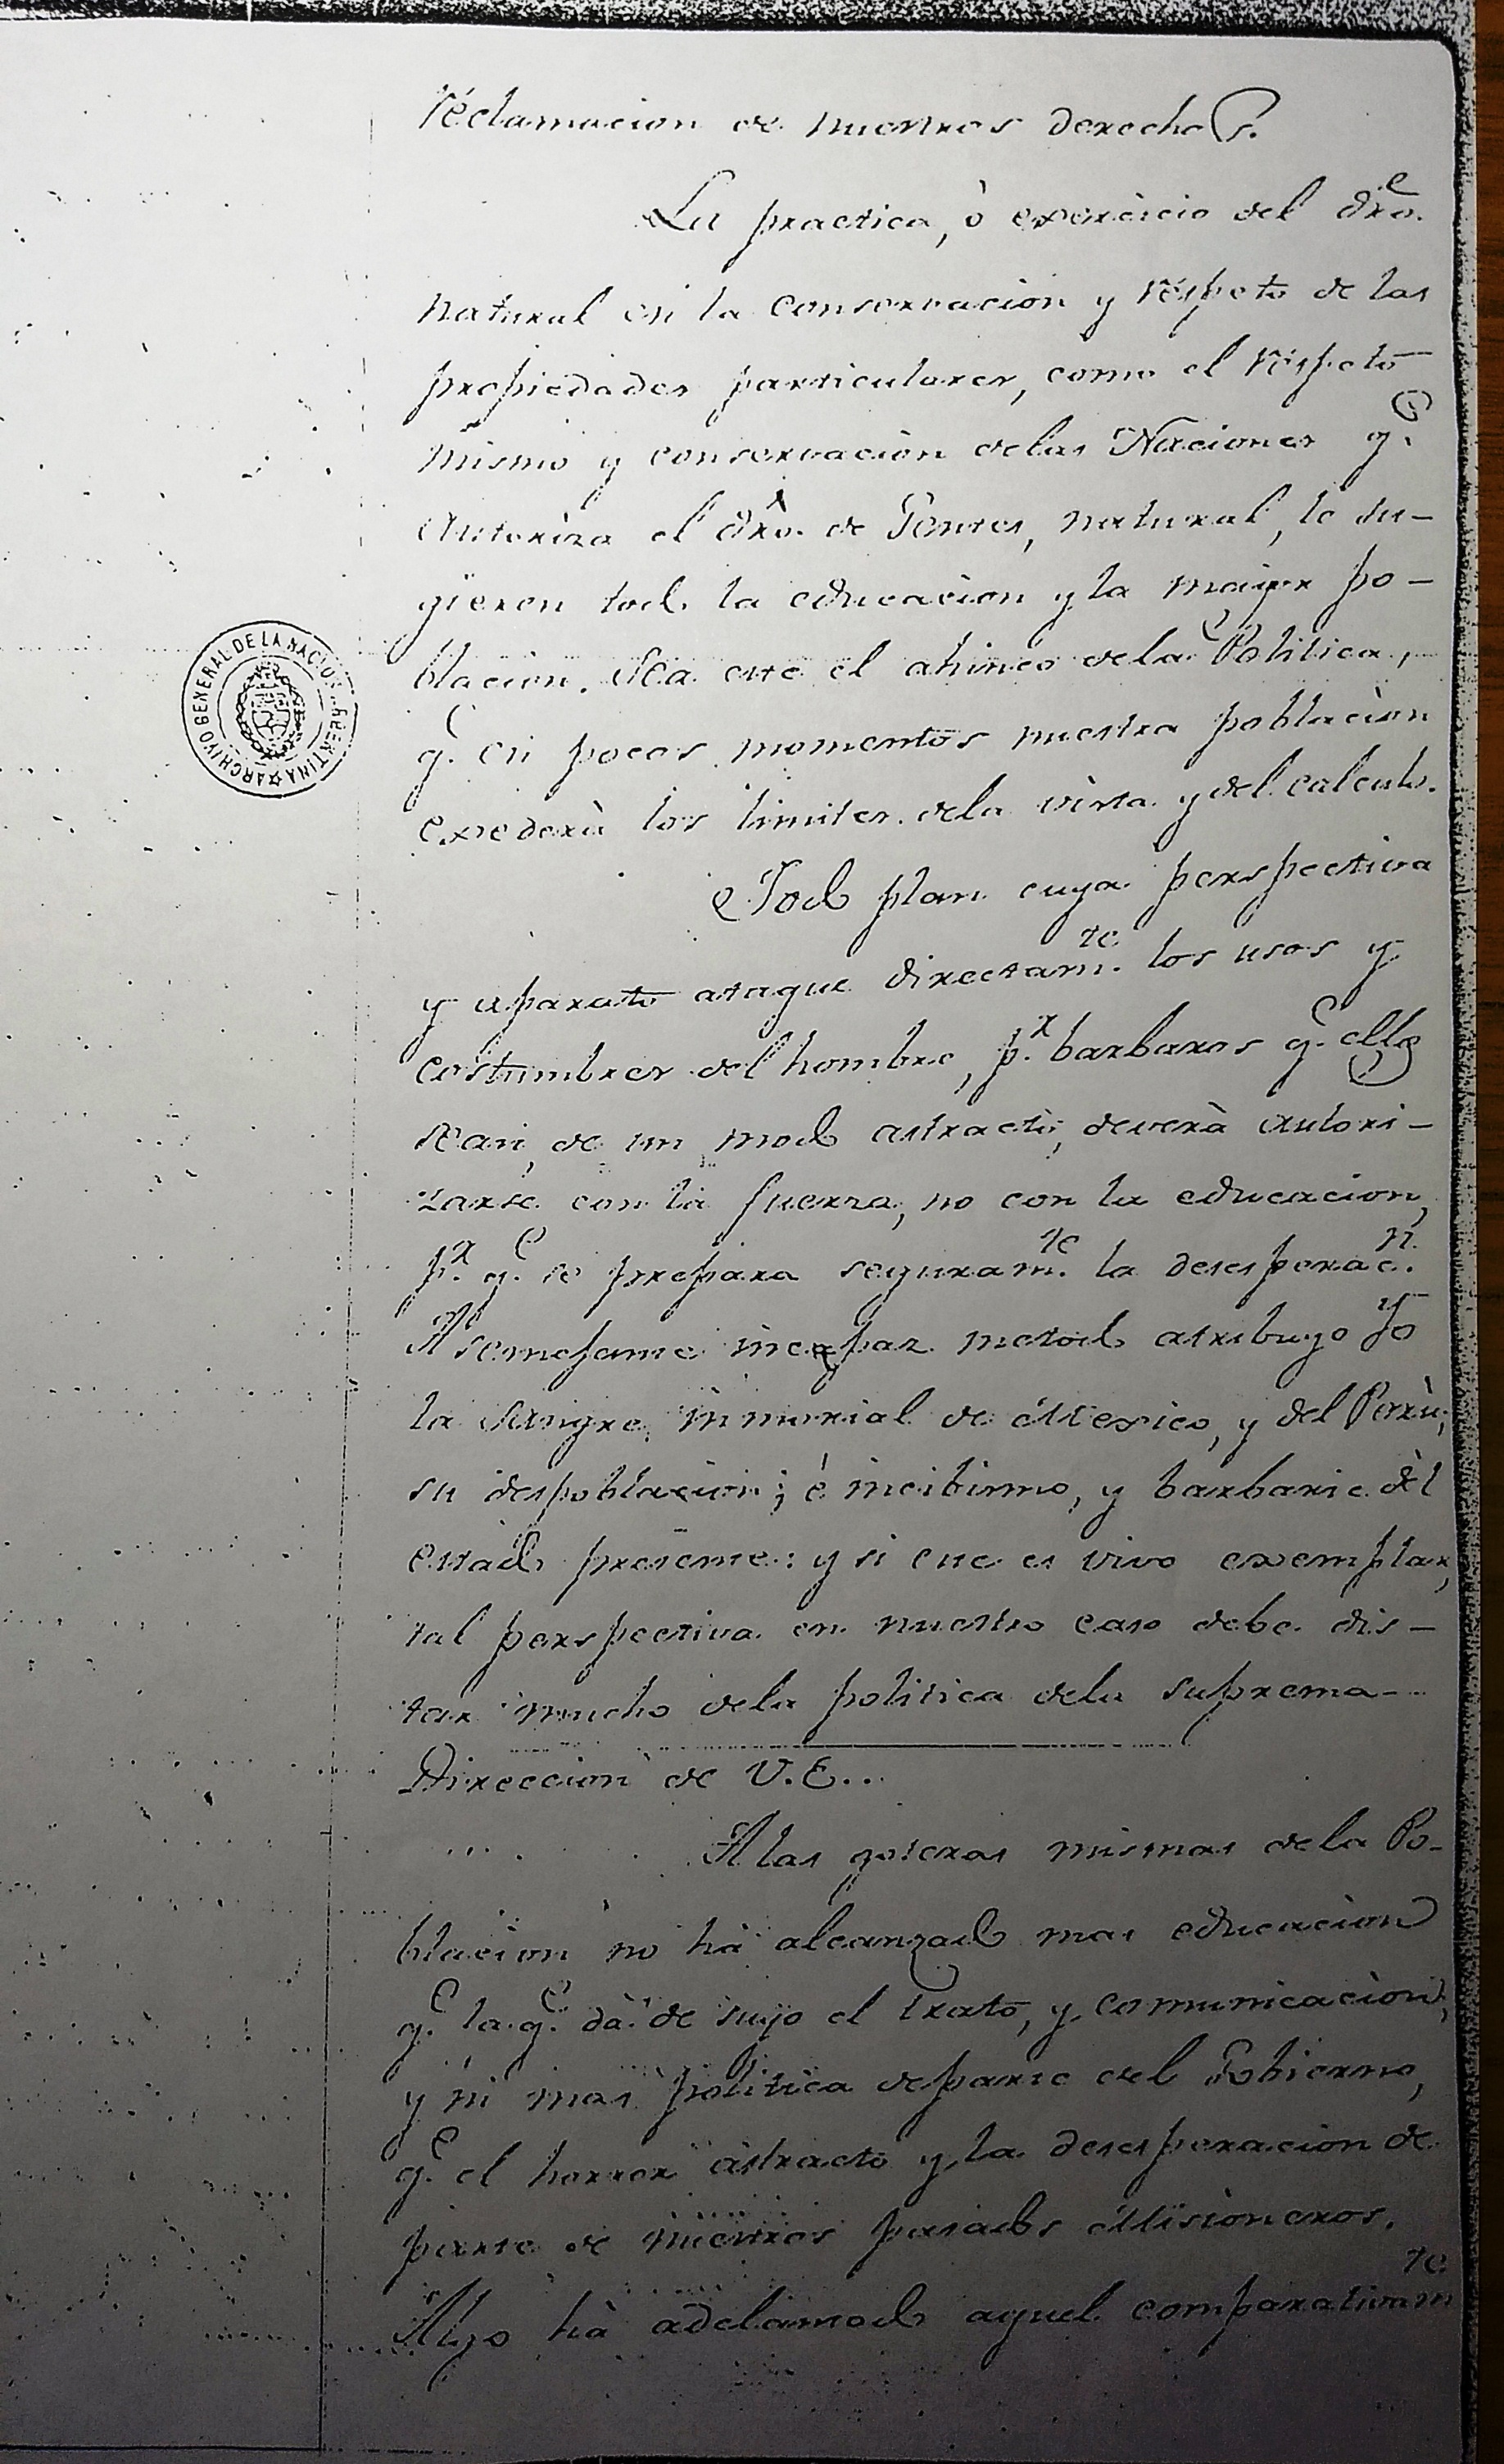 reclamacion de nuestros derechos.
La practica, ò exercicio del dro.
natural en la conservacion y respeto de las
propiedades particulares, como el respeto
mismo y conservacion delas Naciones q.e
autoriza el dro. de Gentes, natural, lo su-
gieren todo la educacion y la mayor po-
blacion. Sea este el ahinco dela Politica,
q.e en pocos momentos nuestra poblaciòn
excederà los limites dela vista y del calculo.
Todo plan cuya perspectiva
y aparato ataque directam.te los usos y
costumbres del hombre, p.r barbaros q.e ellos
sean, de un modo astracto, deverà autori-
zarse con la fuerza, no con la educacion,
p.r q.e se prepara seguram.te la desesperac.n
A semejante incapaz metodo atribuyo yo
la sangre inmorial de Mexico, y del Perù,
su despoblacion; è incibismo, y barbarie dèl
estado presente: y si ese es vivo exemplar,
tal perspectiva en nuestro caso debe dis-
tar mucho dela politica dela suprema
Direccion de V.E...
A las goteras mismas de la Po-
blacion no hà alcanzado mas educacion
q.e la q.e dà de suyo el trato, y comunicaciòn,
y ni mas politica departe del Gobierno,
q.e el horror astracto y la desesperacion de
parte de nuestros pasados Misioneros.
Algo hà adelantado aquel comparativam.te
ARCHIVO GENERAL DE LA NACION ARGENTINA